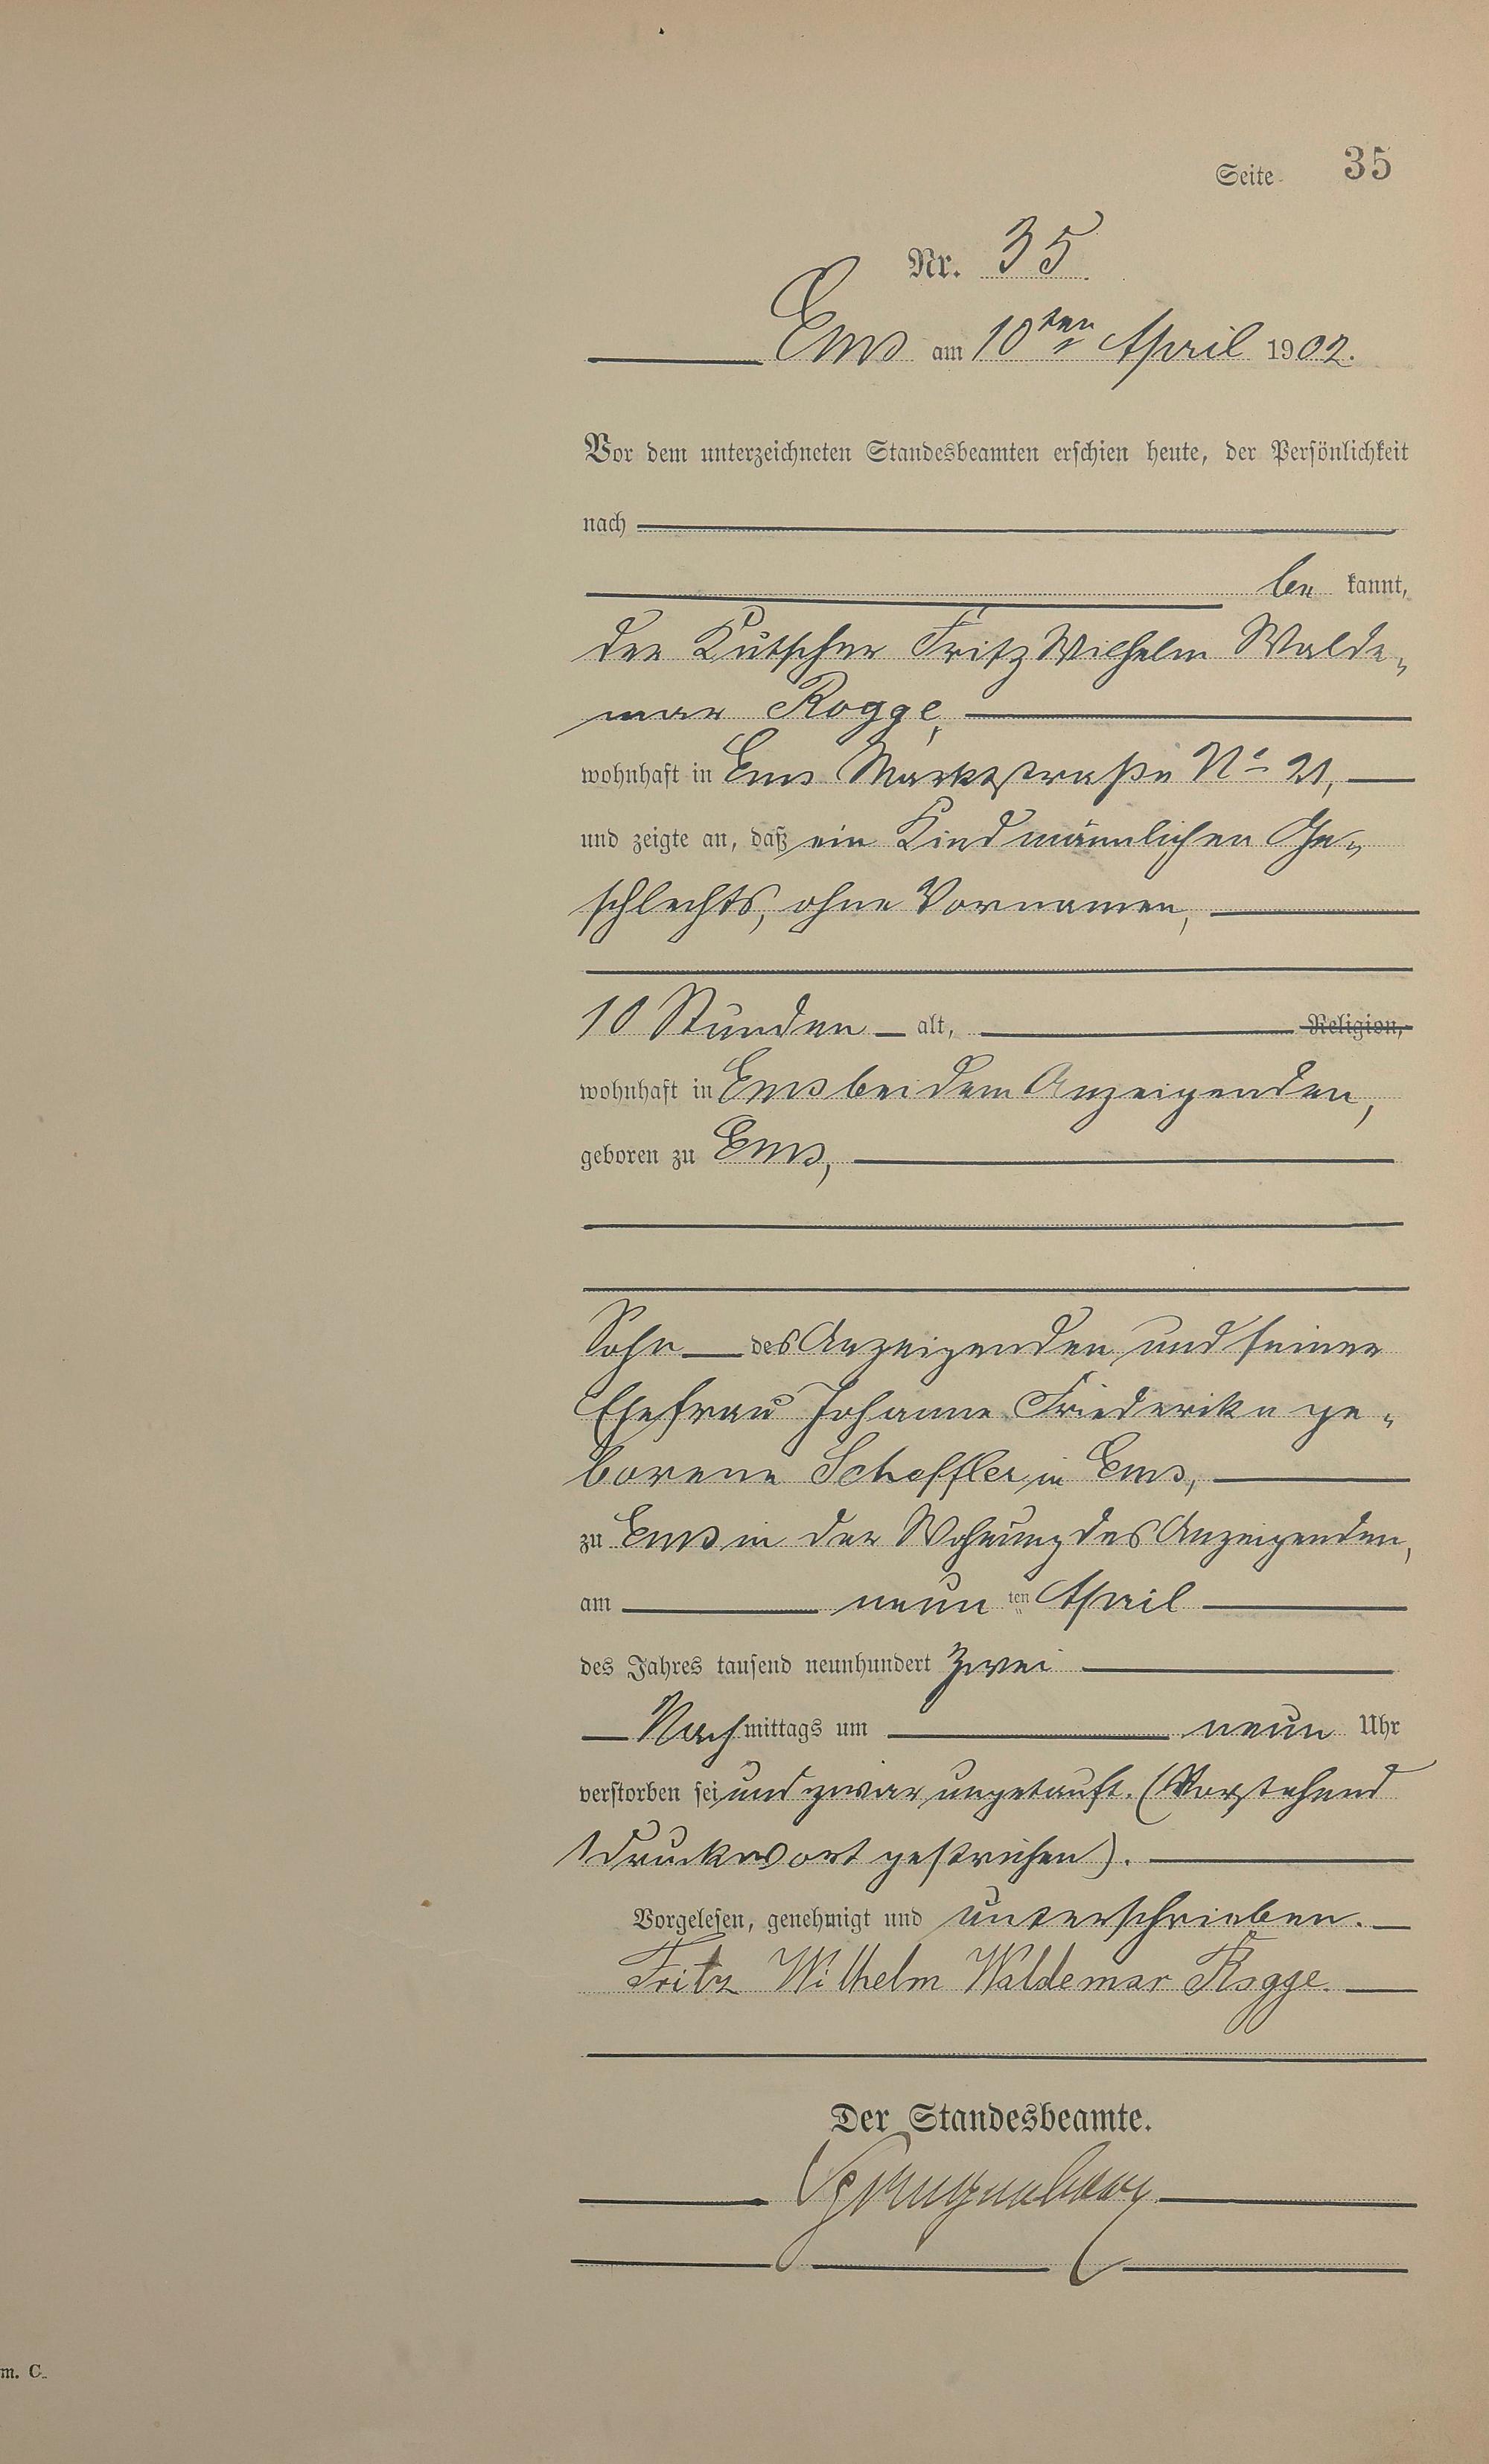 Seite 35
Nr. 35
Ems am 10ten April 1902.
Vor dem unterzeichneten Standesbeamten erschien heute, der Persönlichkeit
nach
be kannt,
der Kutscher Fritz Wilhelm Walde„
mar Rogge,
wohnhaft in Ems Marktstraße No 21,
und zeigte an, daß ein Kind männlichen Ge„
schlechts, ohne Vornamen,
10 Stunden alt, Religion,
wohnhaft in Ems bei dem Anzeigenden,
geboren zu Ems,
Sohn des Anzeigenden und seiner
Ehefrau Johanne Friederike ge„
borene Scheffler in Ems,
zu Ems in der Wohnung des Anzeigenden,
am neun ten April
des Jahres tausend neunhundert zwei
Nach mittags um neun Uhr
verstorben sei und zwar ungetauft. (Vorstehend
1 Druckwort gestrichen).
Vorgelesen, genehmigt und unterschrieben.
Fritz Wilhelm Waldemar Rogge.
Der Standesbeamte.
m. C.